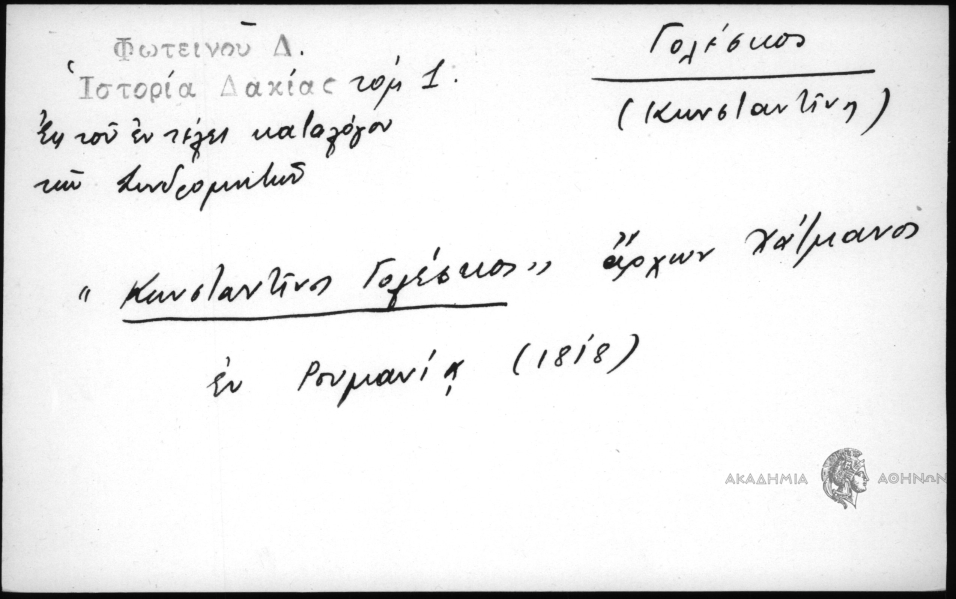 Φωτεινοῦ Δ.
Ἱστορία Δακίας τόμ 1.
Ἐκ τοῦ ἐν τέλει καταλόγου
τῶν Συνδρομητῶν
Γολέσκος
(Κωνσταντῖνος)
"Κωνσταντῖνος Γολέσκος" ἄρχων Χάτμανος
ἐν Ρουμανίᾳ (1818)
ΑΚΑΔΗΜΙΑ ΑΘΗΝΩΝ